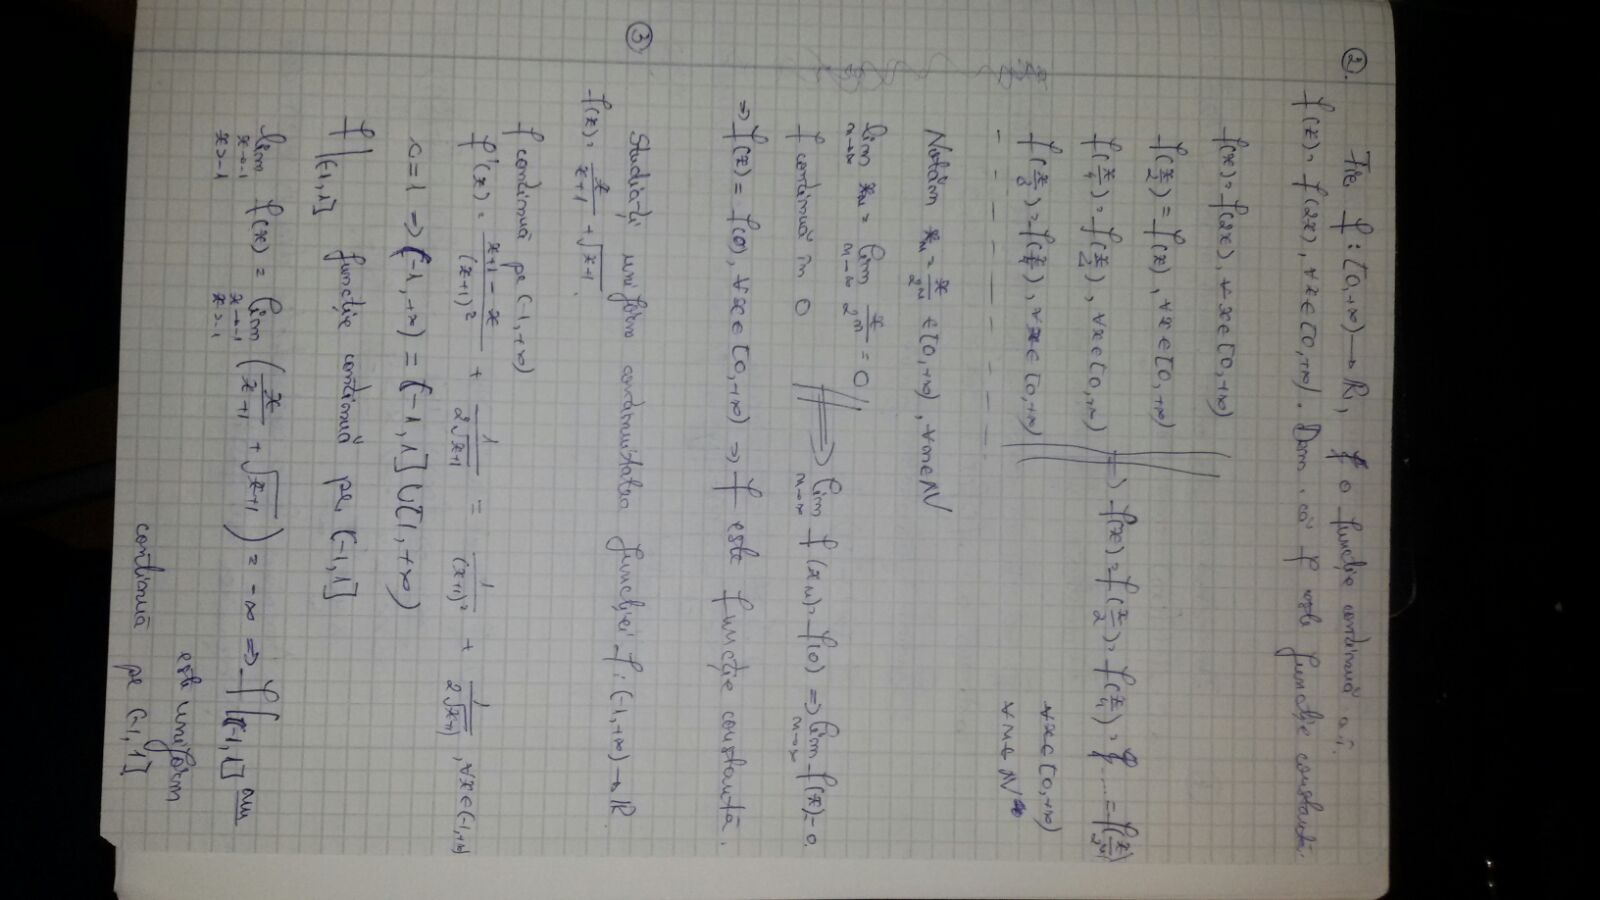 ②. Fie f : [0,+∞) → R, f o funcție continuă a.î.
f(x) = f(2x), ∀x∈[0,+∞). Dem. că f este funcție constantă.
f(x) = f(2x), ∀x∈[0,+∞)
f(x/2) = f(x), ∀x∈[0,+∞)
f(x/4) = f(x/2), ∀x∈[0,+∞) ⇒ f(x) = f(x/2) = f(x/4) = ... = f(x/2ⁿ)
f(x/8) = f(x/4), ∀x∈[0,+∞) ∀x∈[0,+∞)
∀n∈N
Notăm xₙ = x/2ⁿ ∈[0,+∞), ∀n∈N
lim n→∞ xₙ = lim n→∞ x/2ⁿ = 0
f continuă în 0 ⇒ lim n→∞ f(xₙ) = f(0) ⇒ lim n→∞ f(x) = 0.
⇒ f(x) = f(0), ∀x∈[0,+∞) ⇒ f este funcție constantă.
③ Studiați uniform continuitatea funcției f : (-1,+∞) → R
f(x) = x/(x+1) + √(x+1).
f continuă pe (-1,+∞)
f'(x) = (x+1-x)/(x+1)² + 1/(2√(x+1)) = 1/(x+1)² + 1/(2√(x+1)), ∀x∈(-1,+∞)
c=1 ⇒ (-1,+∞) = (-1,1] ∪ [1,+∞)
f|(-1,1] funcție continuă pe (-1,1]
lim x→-1 x>-1 f(x) = lim x→-1 x>-1 (x/(x+1) + √(x+1)) = -∞ ⇒ f|(-1,1] nu
este uniform
continuă pe (-1,1]